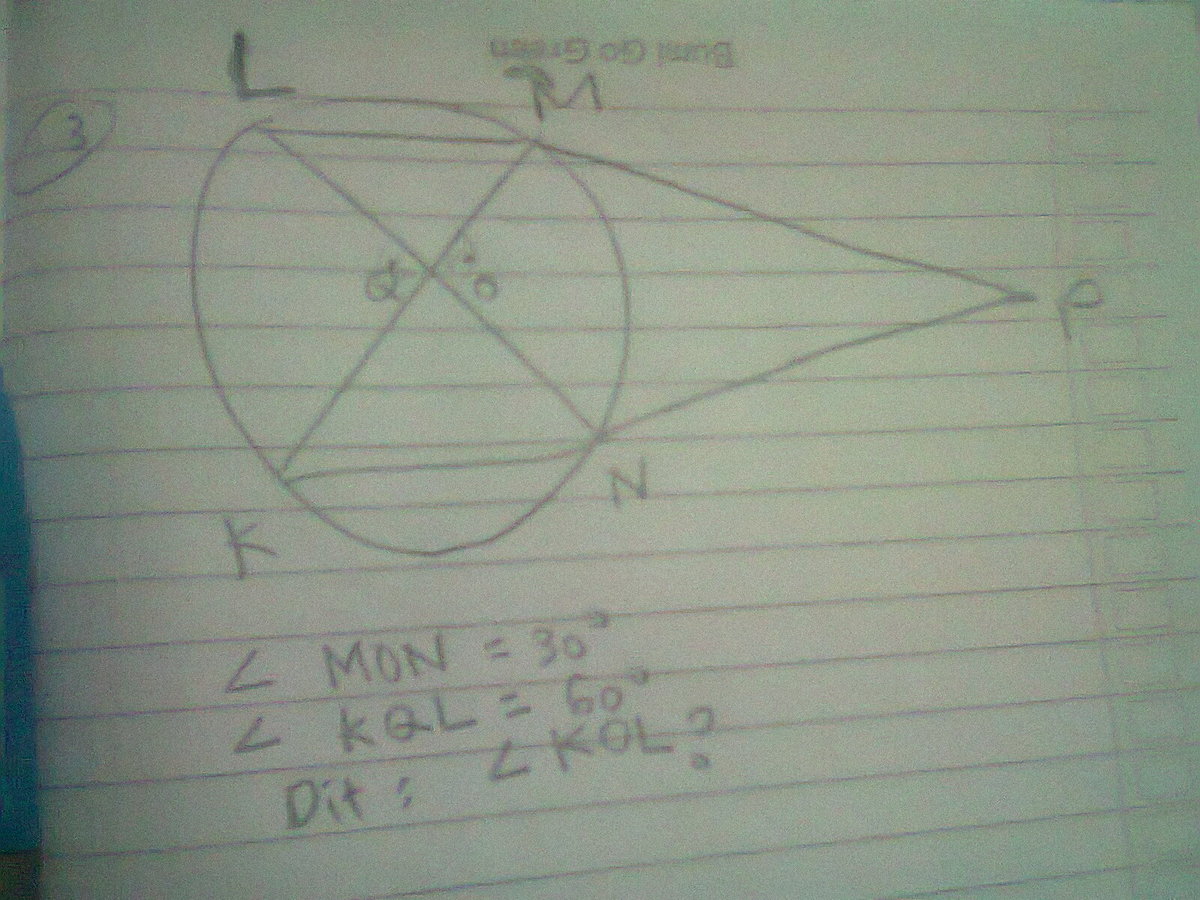 Bumi Go Green
3
L
M
Q
O
P
N
K
∠ MON = 30°
∠ KQL = 60°
Dit : ∠ KOL?